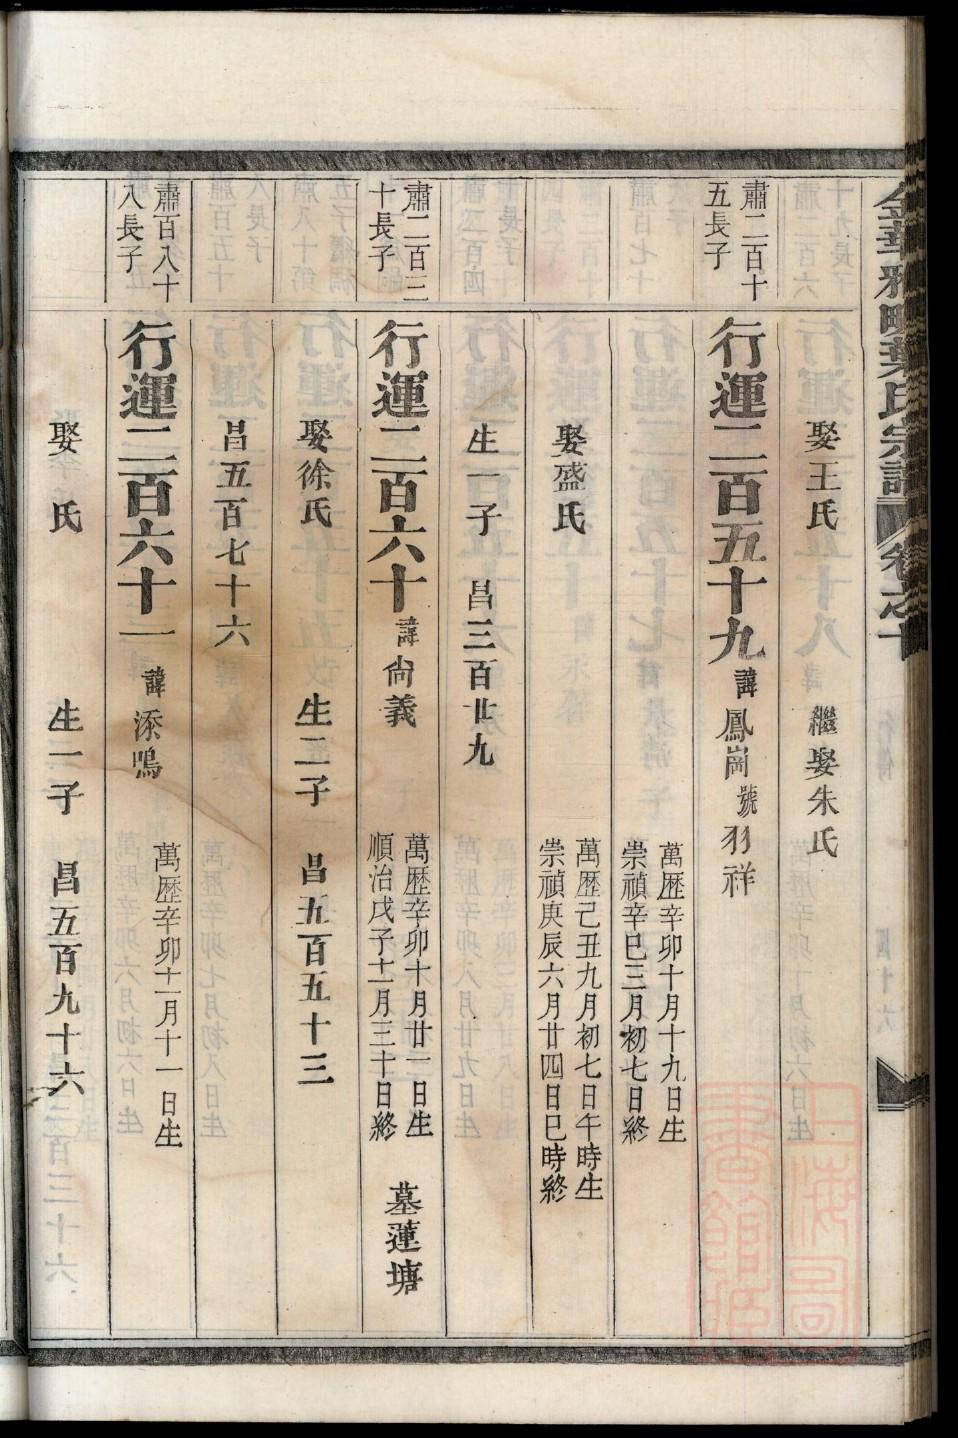 金華雅畈葉氏宗譜 卷之十
娶王氏 繼娶朱氏
肅二百十五長子
行運二百五十九 諱鳳崗 號羽祥
萬歷辛卯十月十九日生
崇禎辛巳三月初七日終
娶盛氏
萬歷己丑九月初七日午時生
崇禎庚辰六月廿四日巳時終
生一子 昌三百廿九
肅二百三十長子
行運二百六十 諱尙義
萬歷辛卯十月廿一日生
順治戊子十二月三十日終
墓蓮塘
娶徐氏 生二子 昌五百五十三
昌五百七十六
肅百八十八長子
行運二百六十一 諱添鳴
萬歷辛卯十二月十一日生
娶 氏 生一子 昌五百九十六